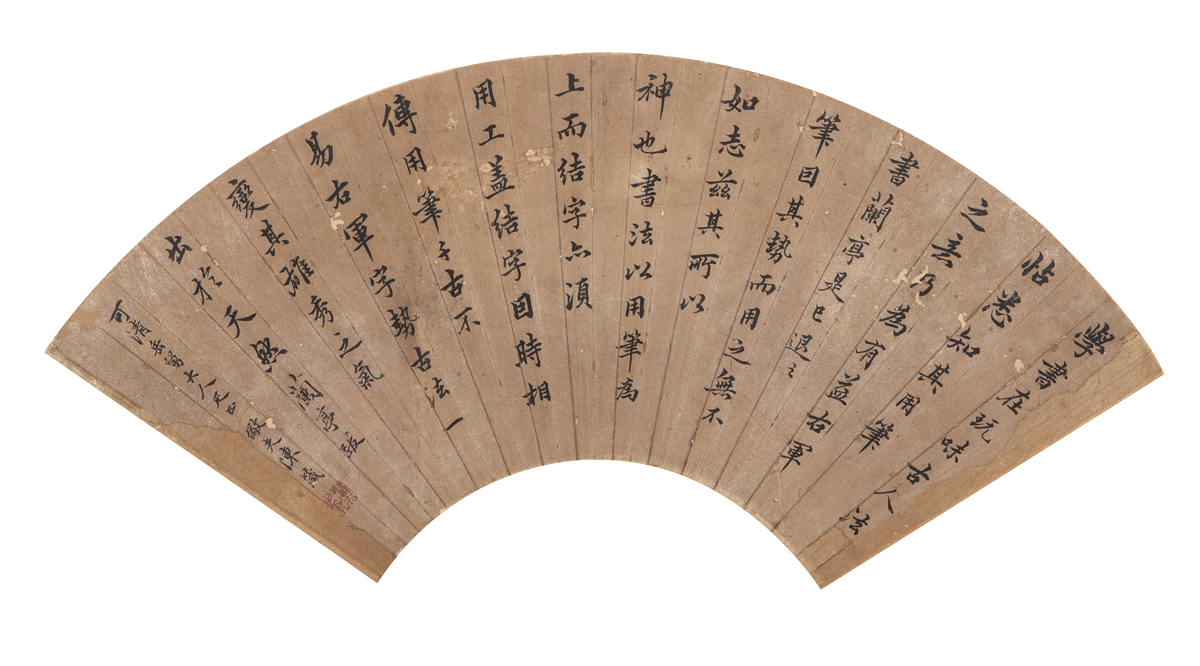 學書在玩味古人法
帖悉知其用筆
之意乃為有益右軍
書蘭亭是已退
筆因其勢而用之無不
如志茲其所以
神也書法以用筆為
上而結字亦須
用工蓋結字因時相
傳用筆千古不
易右軍字勢古法一
變其雄秀之氣
出於天然蘭亭跋
可清岳翁大人正 陳